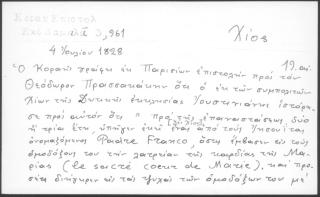 Κοραη Επιστολ
Εκδ Δαμαλα 3, 961
Χίος
4 Ἰουλίου 1828
19. αι.
Ὁ Κοραῆς γράφει ἐκ Παρισίων ἐπιστολὴν πρὸς τὸν
Θεόδωρον Πρασσακάκην ὅτι ὁ ἐκ τῶν συμπολιτῶν
Χίων τῆς Δυτικῆς ἐκκλησίας Ἰουστινιάνης ἱστόρη-
σε πρὸς αὐτὸν ὅτι " πρὸ τῆς ἐπαναστάσεως, δύο
ἢ τρία ἔτη, ὑπῆγεν ἐκεῖ (εἰς Χίον) ἕνας ἀπὸ τοὺς Ἰησουίτας
ὀνομαζόμενος Padre Franco, ὅστις ἔμβασεν εἰς τοὺς
ὁμοδόξους του τὴν λατρείαν τῆς καρδίας τῆς Μα-
ρίας (le sacré coeur de Marie), καὶ προσ-
έτι διήγειρεν εἰς τὰς ψυχὰς τῶν ὁμοδόξων του μέ